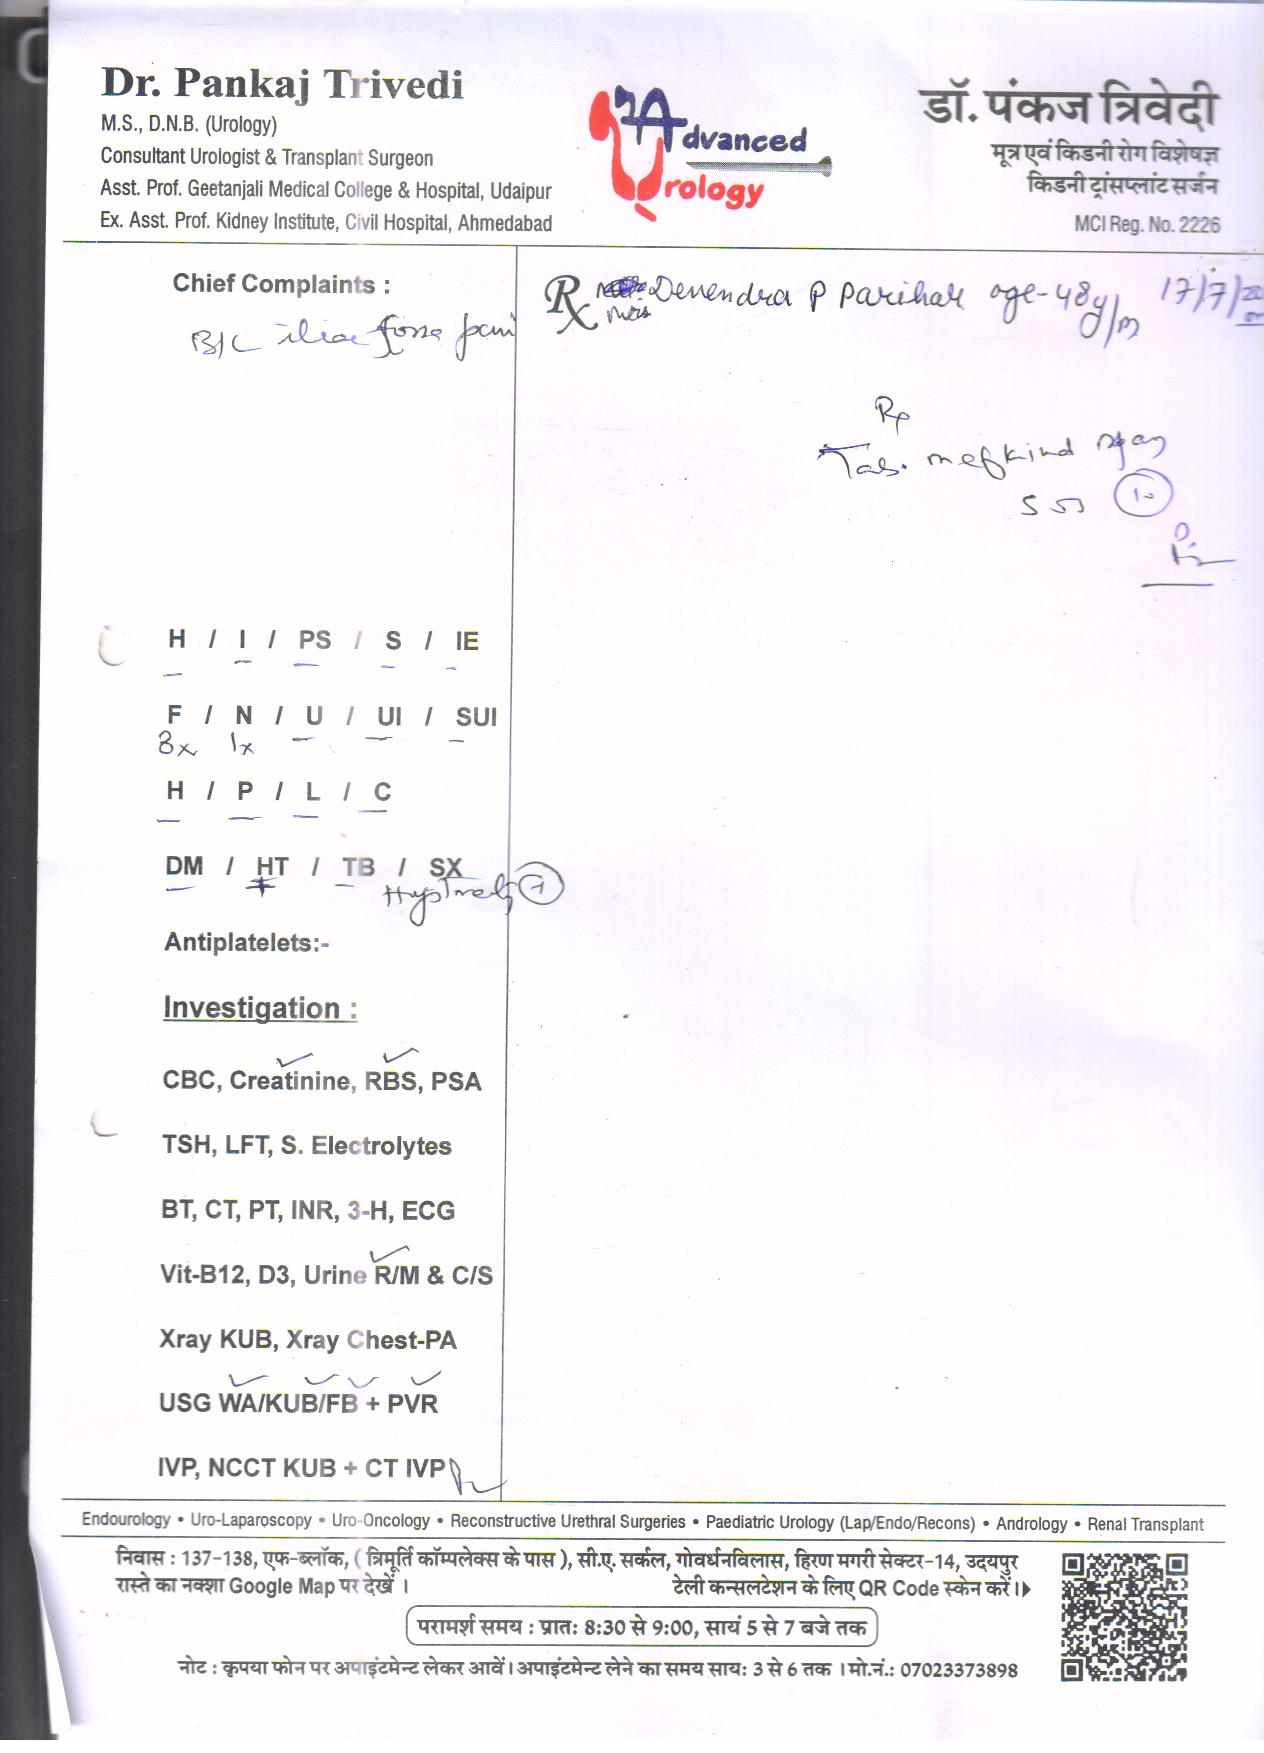 Dr. Pankaj Trivedi
M.S., D.N.B. (Urology)
Consultant Urologist & Transplant Surgeon
Asst. Prof. Geetanjali Medical College & Hospital, Udaipur
Ex. Asst. Prof. Kidney Institute, Civil Hospital, Ahmedabad
Advanced
Urology
डॉ. पंकज त्रिवेदी
मूत्र एवं किडनी रोग विशेषज्ञ
किडनी ट्रांसप्लांट सर्जन
MCI Reg. No. 2226
Chief Complaints :
B/L iliac fossa pain
Rx Mrs Devendra P Parihar age-48y/m 17/7/20
Rp
Tab. mefkind spas
S SOS 10
H / I / PS / S / IE
F / N / U / UI / SUI
3x 1x
H / P / L / C
DM / HT / TB / SX
+
Antiplatelets:-
Investigation :
CBC, Creatinine, RBS, PSA
TSH, LFT, S. Electrolytes
BT, CT, PT, INR, 3-H, ECG
Vit-B12, D3, Urine R/M & C/S
Xray KUB, Xray Chest-PA
USG WA/KUB/FB + PVR
IVP, NCCT KUB + CT IVP
Endourology • Uro-Laparoscopy • Uro-Oncology • Reconstructive Urethral Surgeries • Paediatric Urology (Lap/Endo/Recons) • Andrology • Renal Transplant
निवास : 137-138, एफ-ब्लॉक, ( त्रिमूर्ति कॉम्पलेक्स के पास ), सी.ए. सर्कल, गोवर्धनविलास, हिरण मगरी सेक्टर-14, उदयपुर
रास्ते का नक्शा Google Map पर देखें । टेली कन्सलटेशन के लिए QR Code स्केन करें ।
परामर्श समय : प्रातः 8:30 से 9:00, सायं 5 से 7 बजे तक
नोट : कृपया फोन पर अपाइंटमेन्ट लेकर आवें । अपाइंटमेन्ट लेने का समय सायः 3 से 6 तक । मो.नं.: 07023373898